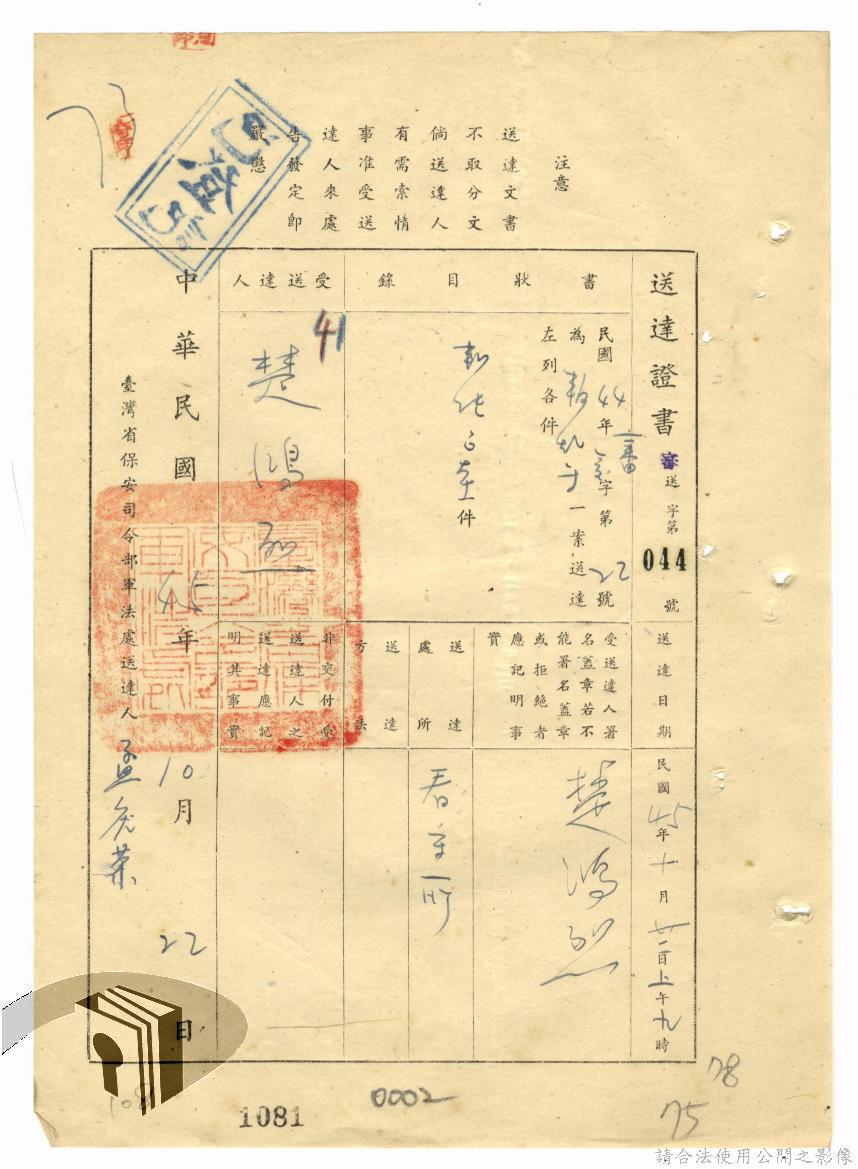 注意
送達文書
不取分文
倘送達人
有需索情
事准受送
達人來處
告發定即
嚴懲
送達證書
審送字第044號
書狀目錄
民國44年審字第22號
為叛亂一案送達
左列各件
件
受送達人
41
楚鴻烈
送達日期
民國45年十月廿二日上午九時
受送達人署
名蓋章若不
能署名蓋章
或拒絕者
應記明事
實
楚鴻烈
送達
處所
看守所
送達
方法
非交付受
送達人之
送達應記
明其事實
中華民國45年10月22日
臺灣省保安司令部軍法處送達人
1081
0002
75
78
108
請合法使用公開之影像